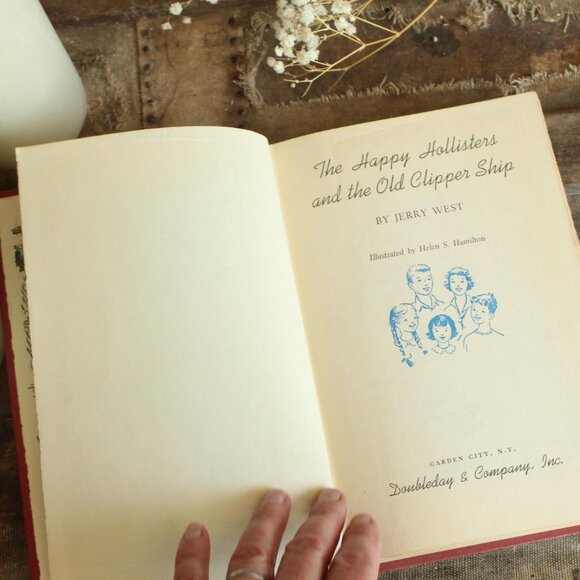 The Happy Hollisters
and the Old Clipper Ship
BY JERRY WEST
Illustrated by Helen S. Hamilton
GARDEN CITY, N.Y.
Doubleday & Company, Inc.